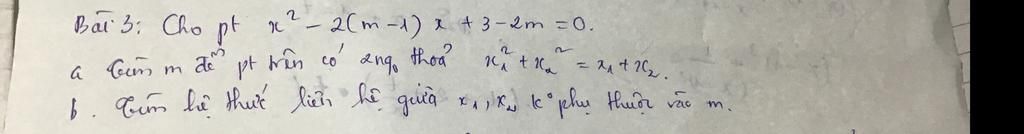 Bài 3: Cho pt x² - 2(m-1)x + 3-2m = 0.
a Tìm m để pt trên có 2ng₀ thoả x₁² + x₂² = x₁ + x₂.
b. Tìm hệ thức liên hệ giữa x₁, x₂ k° phụ thuộc vào m.